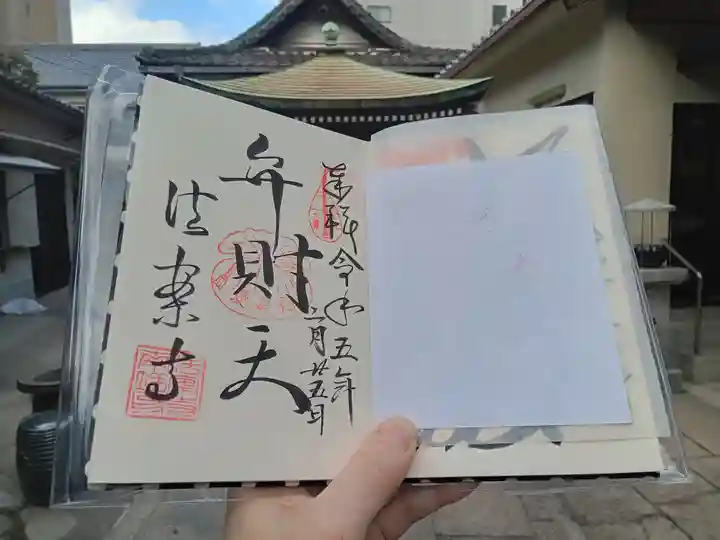 奉拝 令和五年
二月廿五日
弁財天
法案寺